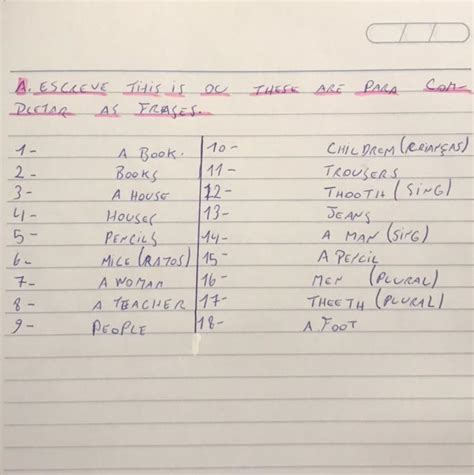 A. ESCREVE THIS IS OU THESE ARE PARA COM-
PLETAR AS FRASES.
1- A BOOK.
2- BOOKS
3- A HOUSE
4- HOUSES
5- PENCILS
6- MICE (RATOS)
7- A WOMAN
8- A TEACHER
9- PEOPLE
10- CHILDREM (CRIANÇAS)
11- TROUSERS
12- THOOTH (SING)
13- JEANS
14- A MAN (SING)
15- A PENCIL
16- MEN (PLURAL)
17- THEETH (PLURAL)
18- A FOOT